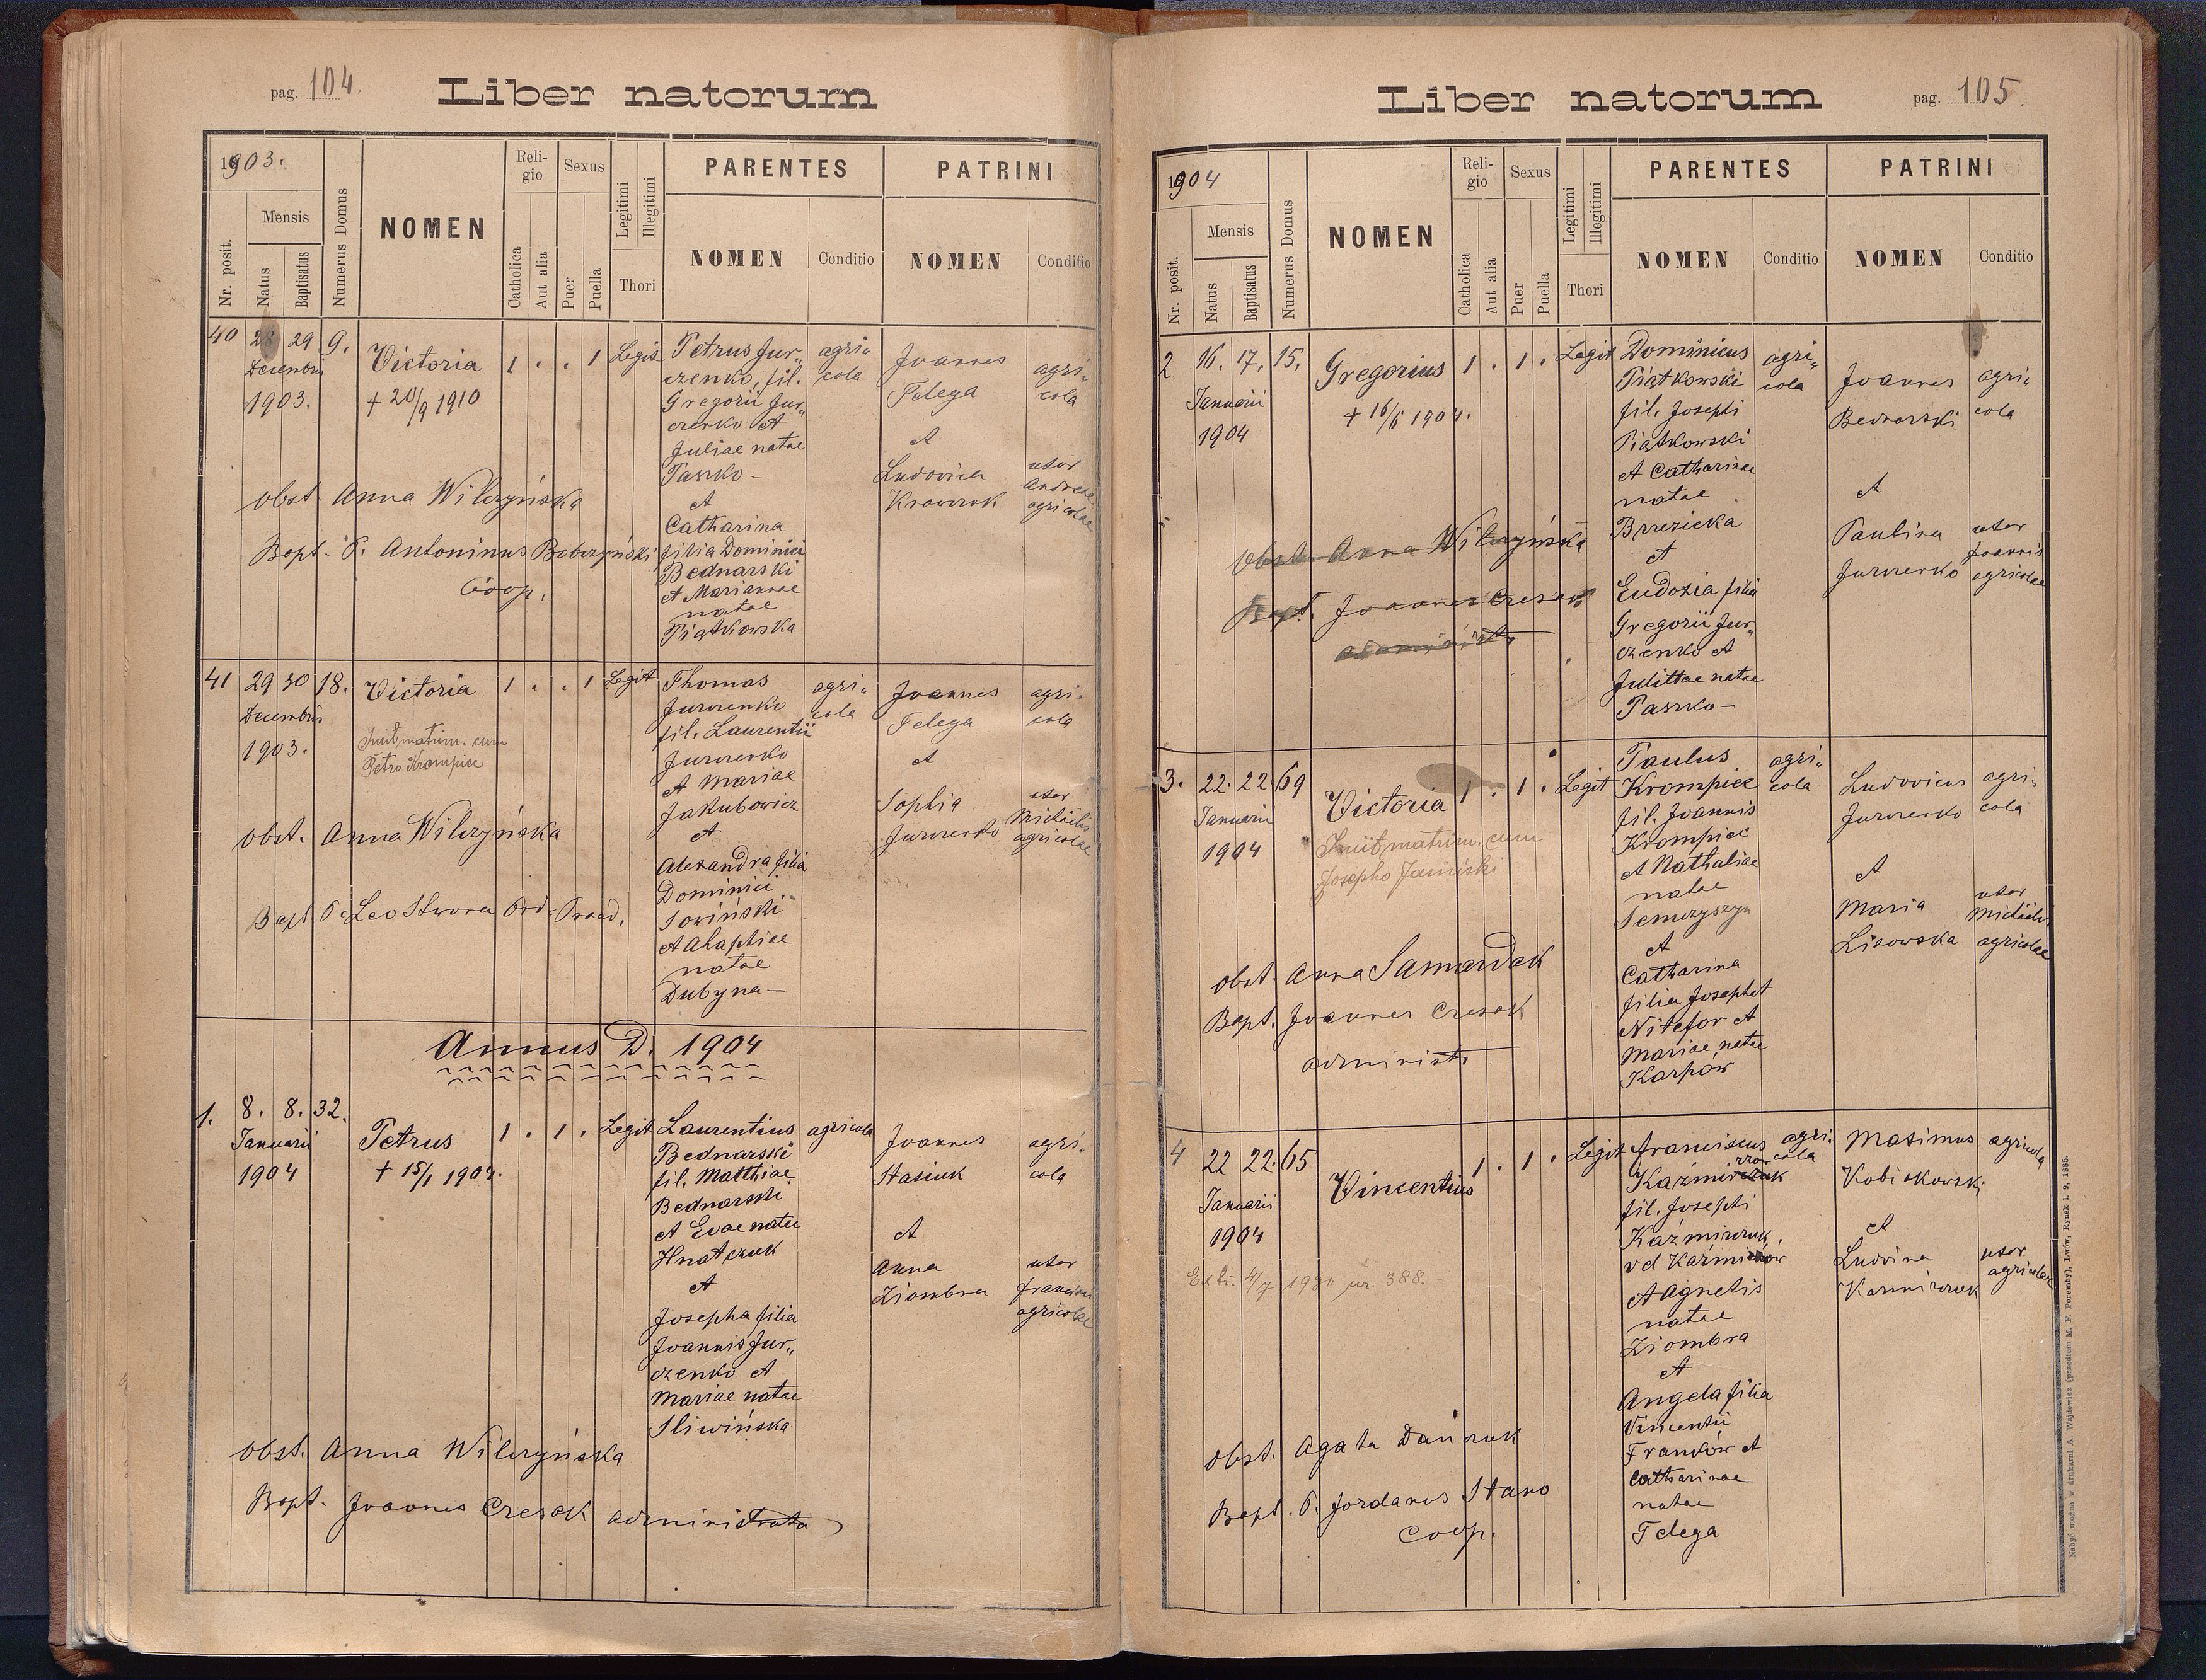 pag. 104.
Liber natorum
1903.
Mensis
Nr. posit.
Natus
Baptisatus
Numerus Domus
NOMEN
Reli-
gio
Catholica
Aut alia
Sexus
Puer
Puella
Legitimi
Illegitimi
Thori
PARENTES
NOMEN
Conditio
PATRINI
NOMEN
Conditio
40
28 29 9.
Decembris
1903.
Victoria
+ 20/9 1910
1 . . 1 Legit
Petrus Jur„
czenko, fil.
Gregorii Jur„
czenko et
Juliae natae
Paszko -
et
Catharina
filia Dominici
Bednarski
et Mariannae
natae
Piątkowska
agri„
cola
Joannes
Telega
et
Ludovica
Krawczuk
agri„
cola
uxor
Andreae
agricolae
obst. Anna Wilczyńska
Bapt. P. Antoninus Bobczyński
Coop.
41
29 30 18.
Decembris
1903.
Victoria
Iniit matrim. cum
Petro Krompiec
1 . . 1 Legit
Thomas
Jurczenko
fil. Laurentii
Jurczenko
et Mariae
Jakubowicz
et
Alexandra filia
Dominici
Sowiński
et Ahaphiae
natae
Dubyna -
agri„
cola
Joannes
Telega
et
Sophia
Jurczenko
agri-
cola
uxor
Michaelis
agricolae
obst. Anna Wilczyńska
Bapt P. Leo Skwora Ord. Praed.
Annus D. 1904
1.
8. 8. 32.
Januarii
1904
Petrus
+ 15/1 1904.
1 . 1 . Legit
Laurentius
Bednarski
fil. Matthiae
Bednarski
et Evae natae
Hnatczuk
et
Josepha filia
Joannis Jur„
czenko et
Mariae natae
Sliwińska
agricola
Joannes
Stasiuk
et
Anna
Ziombra
agri-
cola
uxor
Francisci
agricolae
obst. Anna Wilczyńska
Bapt. Joannes Czesak administrator
pag. 105.
Liber natorum
1904
Mensis
Nr. posit.
Natus
Baptisatus
Numerus Domus
NOMEN
Reli-
gio
Catholica
Aut alia
Sexus
Puer
Puella
Legitimi
Illegitimi
Thori
PARENTES
NOMEN
Conditio
PATRINI
NOMEN
Conditio
2
16. 17. 15.
Januarii
1904
Gregorius
+ 16/6 1904.
1 . 1 . Legit
Dominicus
Piątkowski
fil. Josephi
Piątkowski
et Catharinae
natae
Brzezicka
et
Eudoxia filia
Gregorii Jur„
czenko et
Julittae natae
Paszko -
agri„
cola
Joannes
Bednarski
et
Paulina
Jurczenko
agri„
cola
uxor
Joannis
agricolae
obst. Anna Wilczyńska
Bapt. Joannes Czesak
administr
3.
22. 22 69
Januarii
1904
Victoria
Iniit matrim. cum
Josepho Jasiński
1 . 1 . Legit
Paulus
Krompiec
fil. Joannis
Krompiec
et Nathaliae
natae
Semczyszyn
et
Catharina
filia Josephet
Nikefor et
Mariae natae
Karpów
agri„
cola
Ludovicus
Jurczenko
et
Maria
Lisowska
agri„
cola
uxor
Michaelis
agricolae
obst. Anna Samardak
Bapt. Joannes Czesak
administr
4
22 22. 65
Januarii
1904
Vincentius
1 . 1 . Legit
Franciscus
Kaźmirczuk
fil. Josephi
Kaźmirczuk,
vel Kaźmirczow
et Agnetis
natae
Ziombra
et
Angela filia
Vincentii
Franków et
Catharinae
natae
Telega
agri-
cola
Maximus
Kobiakowski
et
Ludvina
Kazmirczuk
agricola
uxor
agricolae
obst. Agata Dańczuk
Bapt. P. Jordanus Stano
coop.
Nabyć można w drukarni A. Wajdowicz (przedtem M. F. Poremby), Lwów, Rynek l. 9, 1885.